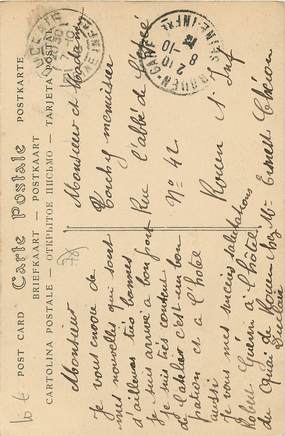 POST CARD Carte Postale POSTKARTE
BRIEFKAART — POSTKAART
CARTOLINA POSTALE — ОТКРЫТОЕ ПИСЬМО — TARJETA POSTAL
Monsieur
je vous envoie de
mes nouvelles qui sont
d'ailleurs très bonnes
je suis arrivé a bon port
je suis très content
de l'atelier c'est un bon
patron et a l'hôtel
aussi
je vous mes sincères salutations
Robert Guerin à l'hôtel
du Quai de Rouen chez Mr Ernest
Duclair
Monsieur et Madame
Touchez menuisier
Rue l'abbé de l'épée
No 42
Rouen
S. Inf
ROUEN-GARE
SEINE-INFRE
8 10